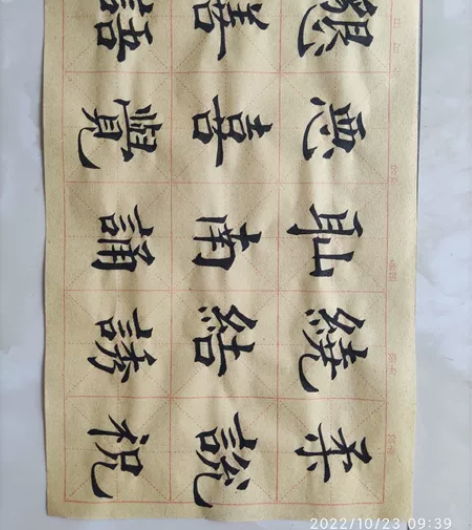 惡繞柔
善喜南結說
語覺誦謗祝
2022/10/23 09:39